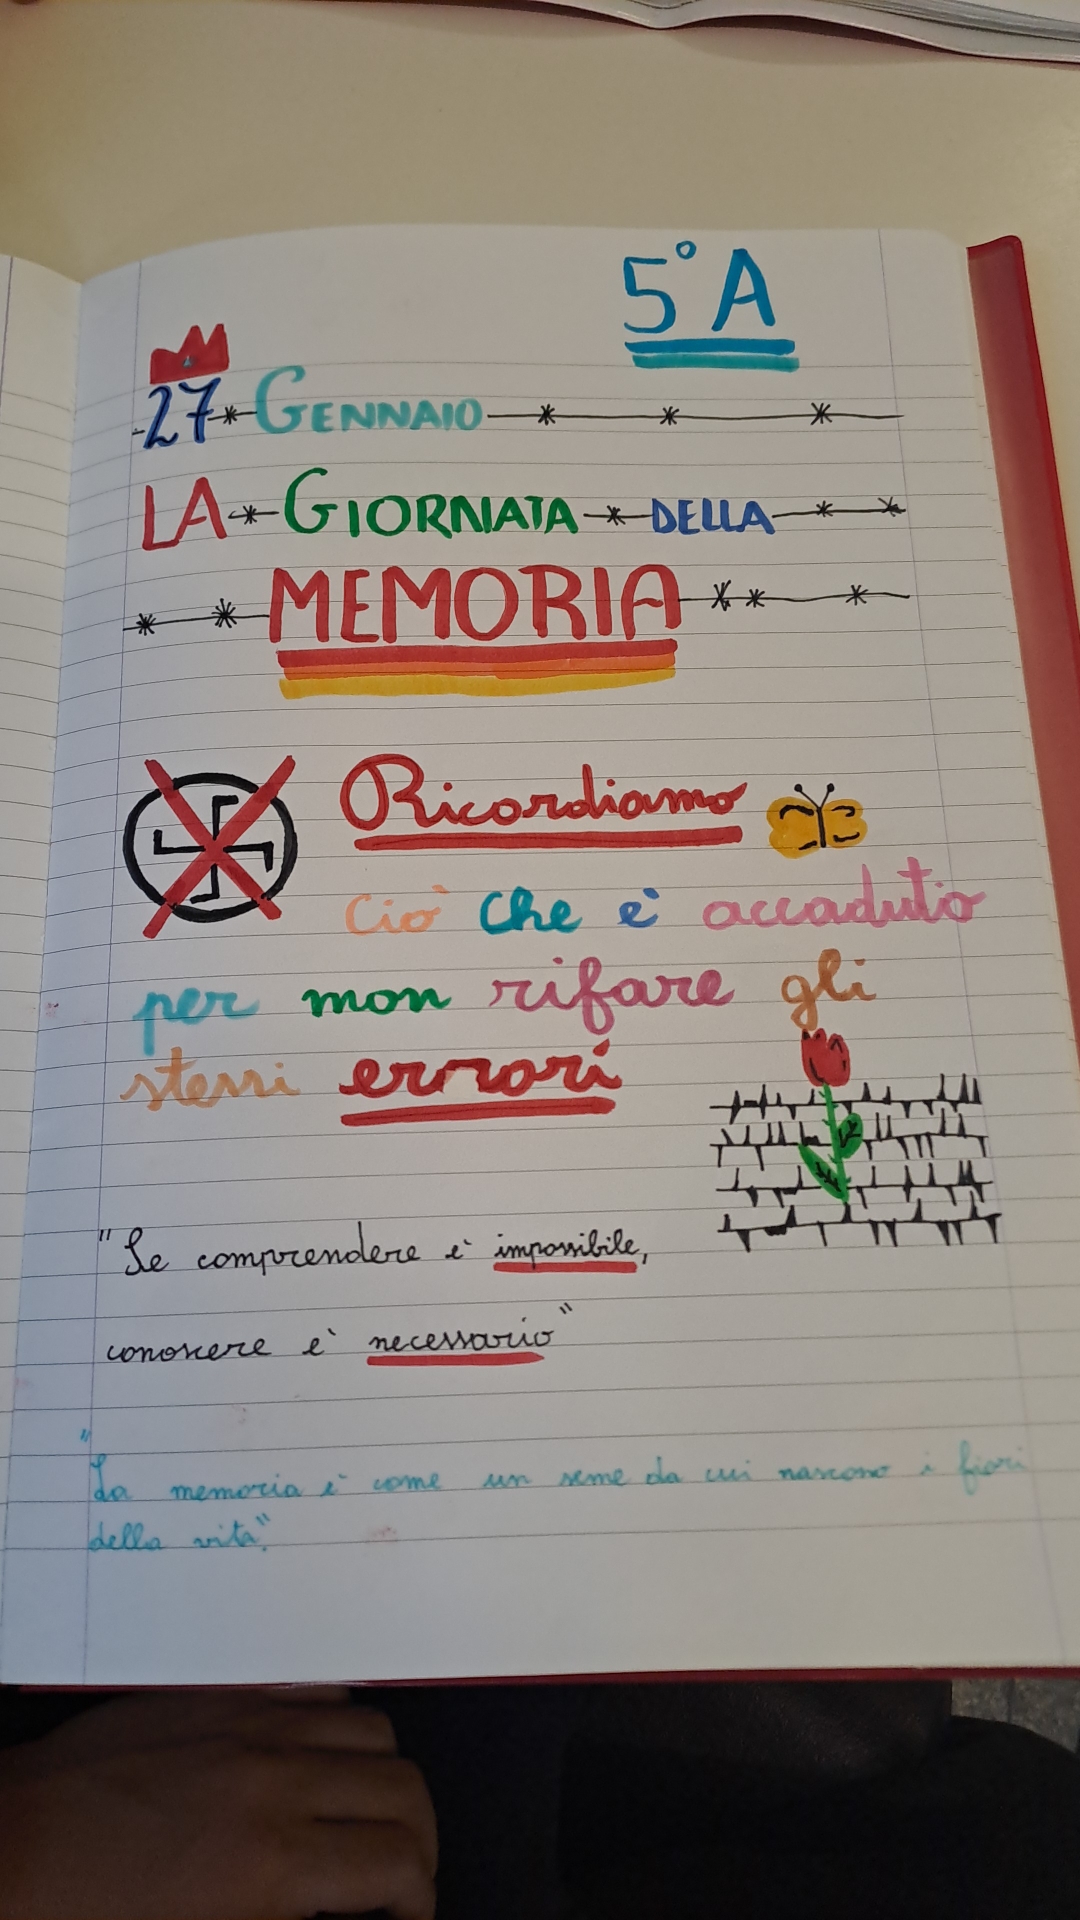 5° A
27 GENNAIO
LA GIORNATA DELLA
MEMORIA
Ricordiamo
ciò che è accaduto
per non rifare gli
stessi errori
"Se comprendere è impossibile,
conoscere è necessario"
"La memoria è come un seme da cui nascono i fiori
della vita".